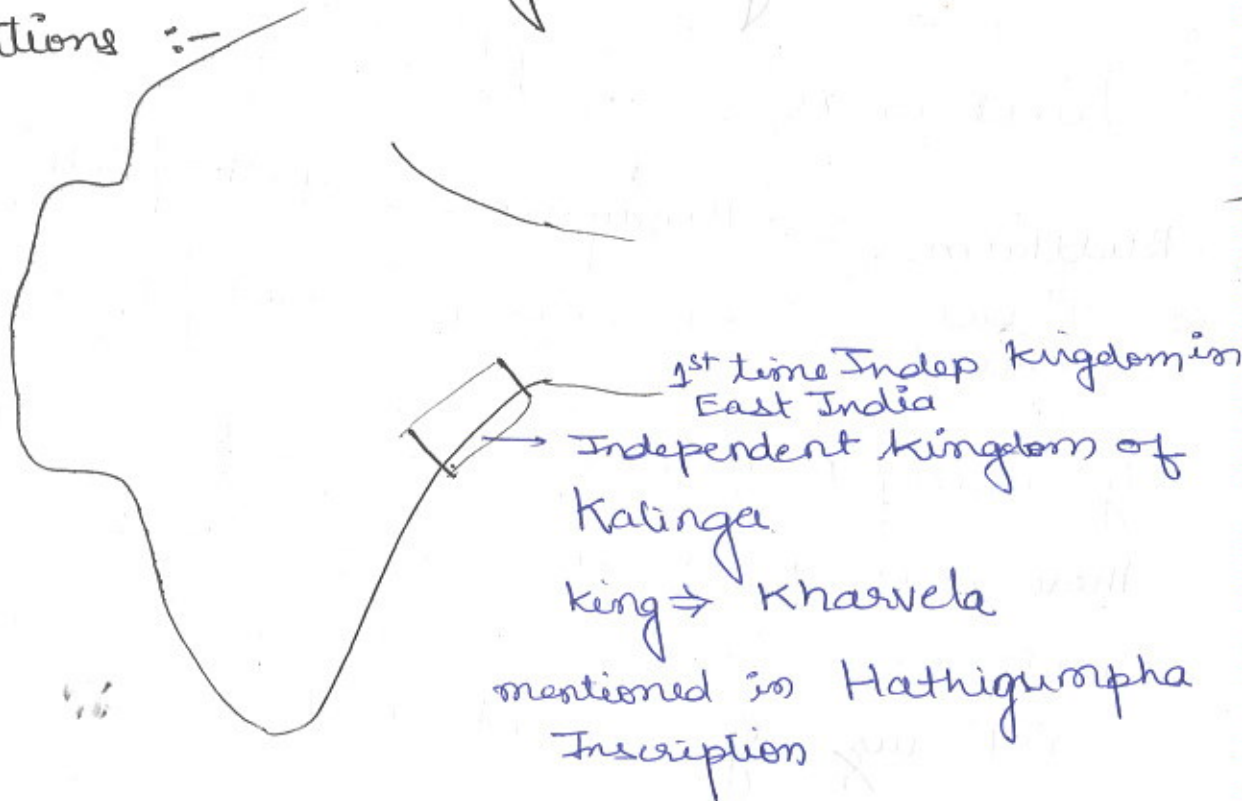 tions :-
1st time Indep kigdom in
East India
→ Independent kingdom of
Kalinga
king ⇒ Kharvela
mentioned in Hathigumpha
Inscription